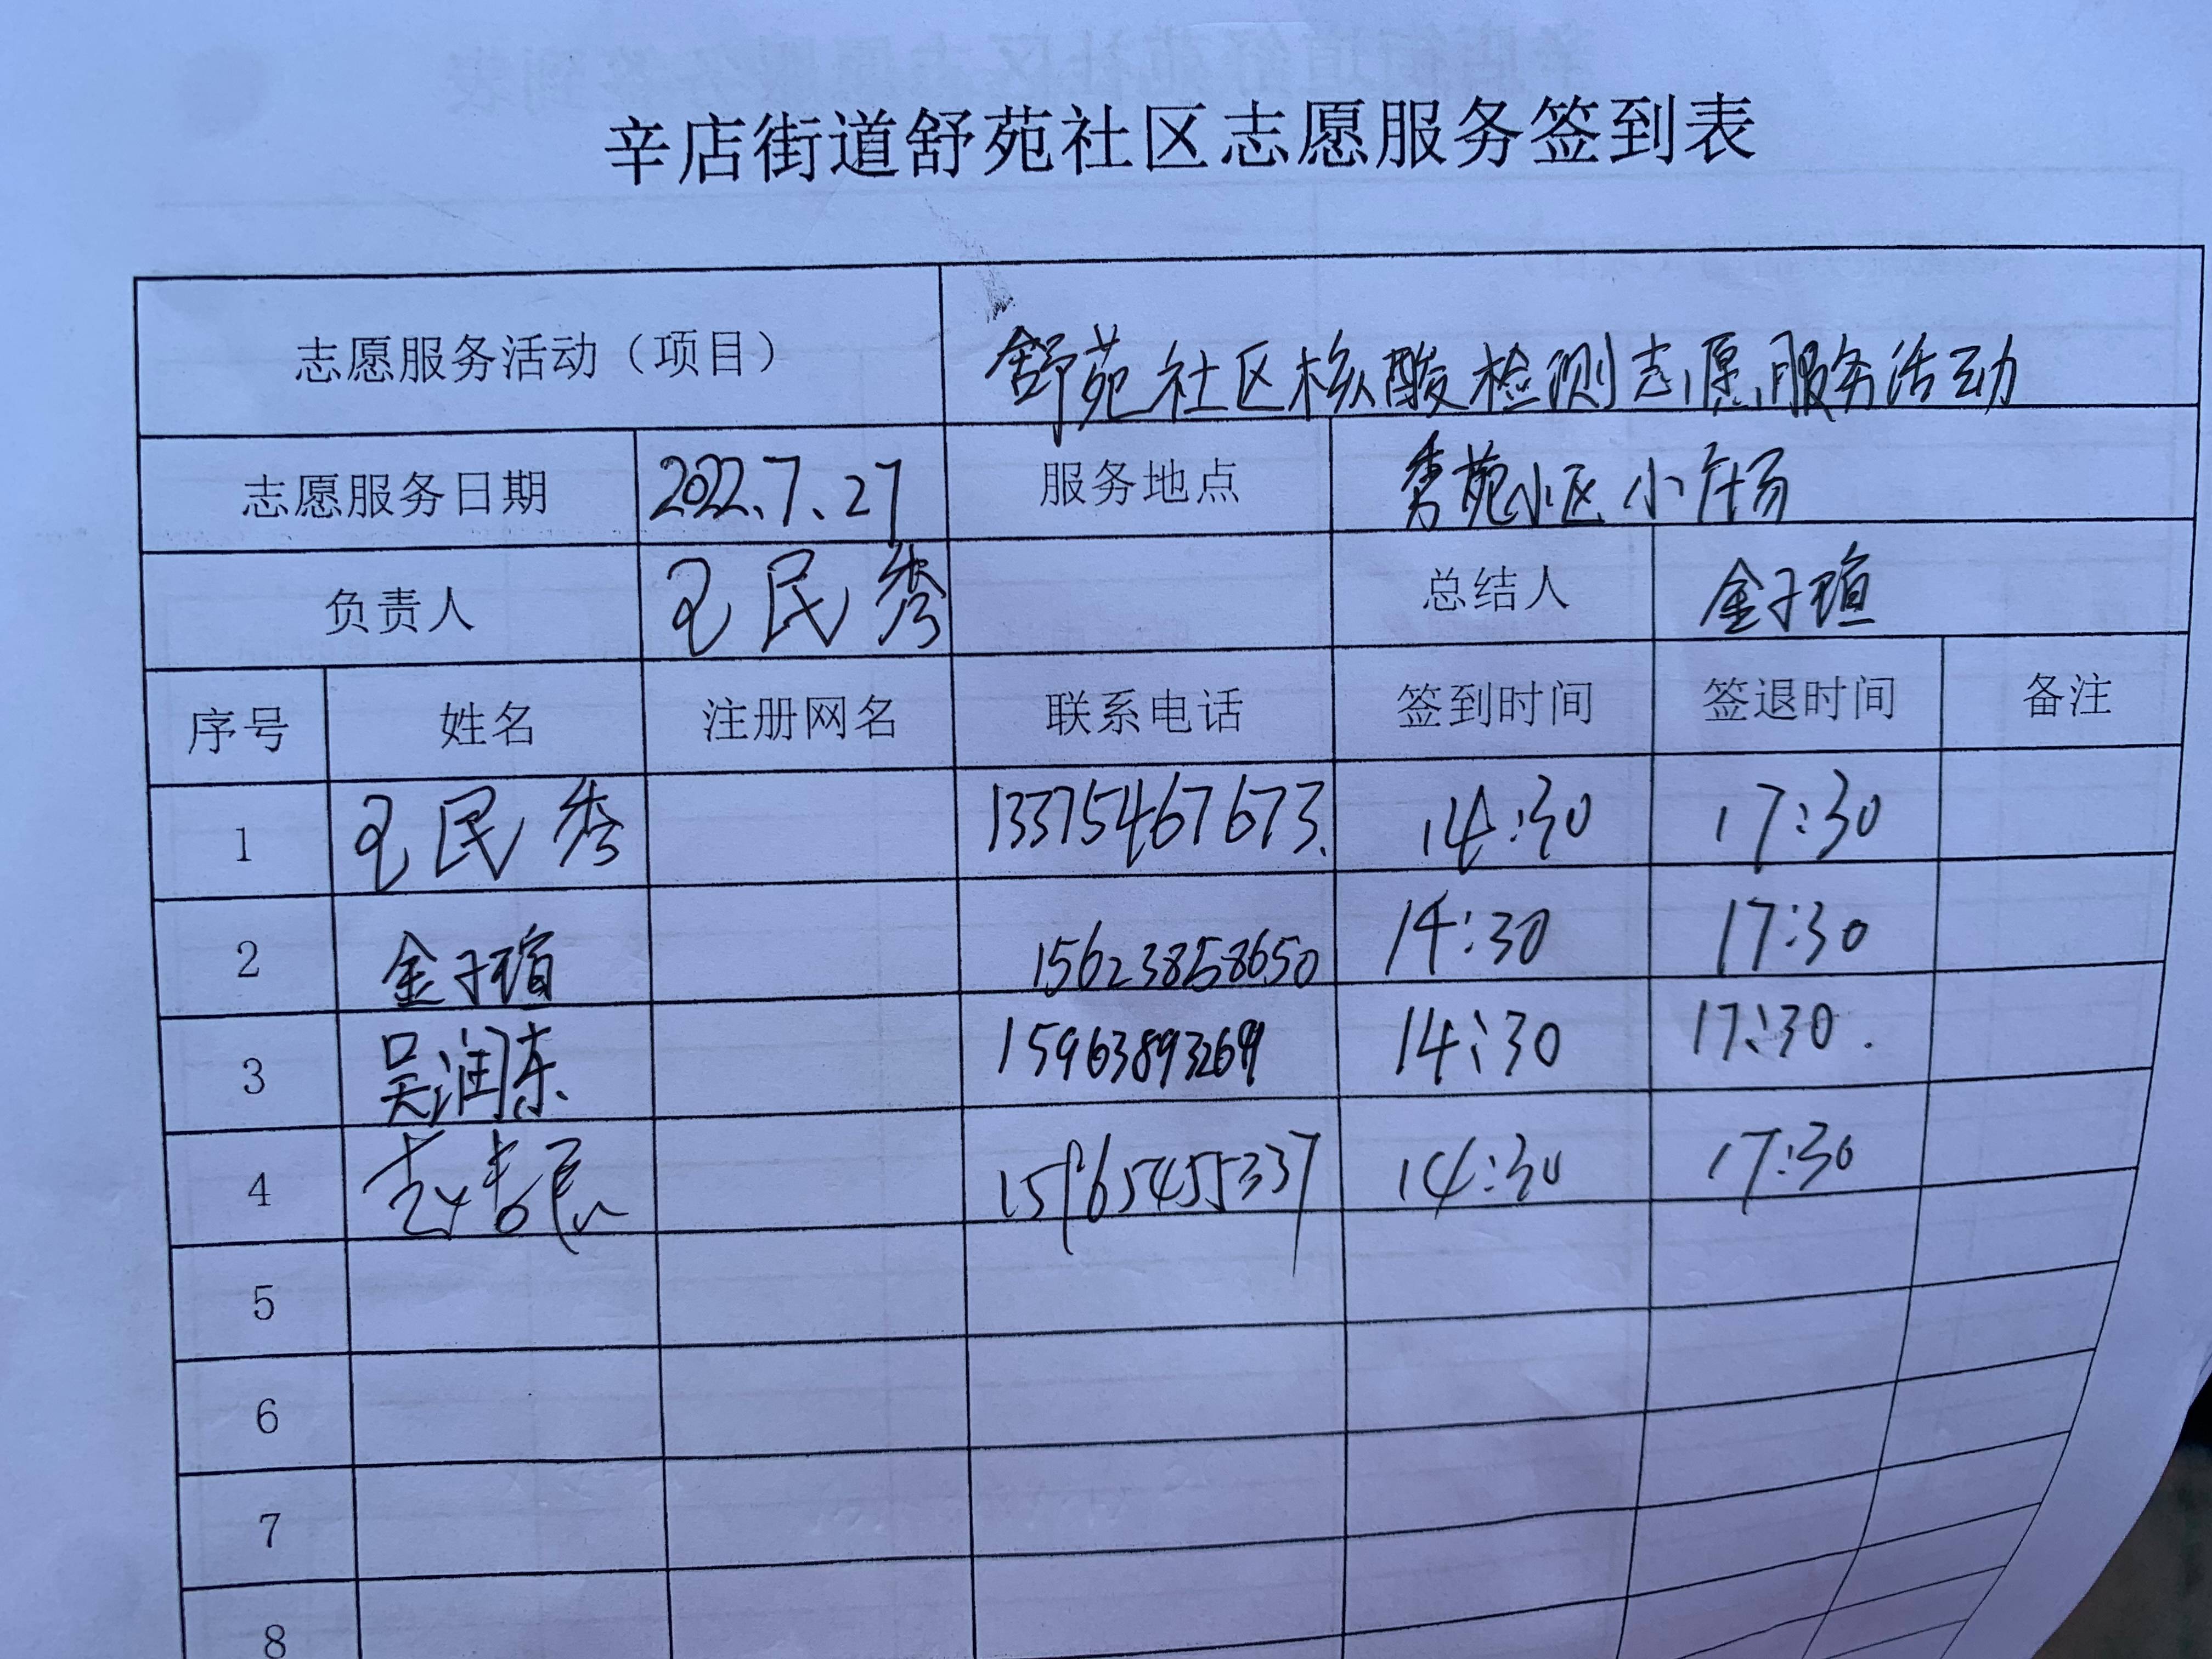 辛店街道舒苑社区志愿服务签到表
志愿服务活动（项目） 舒苑社区核酸检测志愿服务活动
志愿服务日期 2022.7.27 服务地点 秀苑小区小广场
负责人 王民秀 总结人 金子瑄
序号 姓名 注册网名 联系电话 签到时间 签退时间 备注
1 王民秀 13375467673. 14:30 17:30
2 金子瑄 15623858650 14:30 17:30
3 吴润东 14:30 17:30.
4 15965455337 14:30 17:30
5
6
7
8